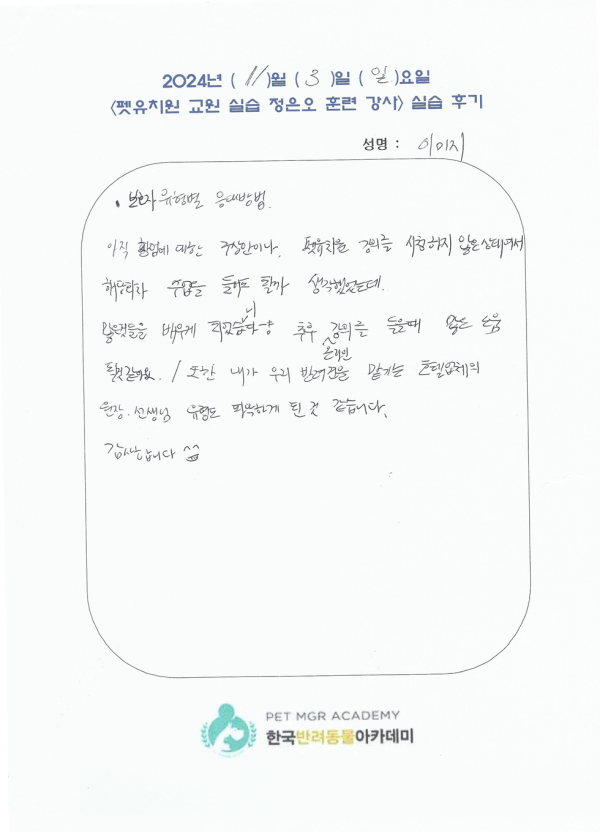 2024년 ( 11 )월 ( 3 )일 ( 일 )요일
<펫유치원 교원 실습 정은오 훈련 강사> 실습 후기
성명 : 이미지
• 보호자 유형별 응대방법.
아직 창업에 대한 구상만이나. 펫유치원 강의를 시청하지 않은상태여서
수업을 들어도 될까 생각했었는데.
많은것들을 배우게 되었습니다 향후 온라인 강의를 들을때 많은 도움
될것같아요. / 또한 내가 우리 반려견을 맡기는 호텔업체의
원장.선생님 유형도 파악하게 된 것 같습니다.
감사합니다 ^^
PET MGR ACADEMY
한국반려동물아카데미